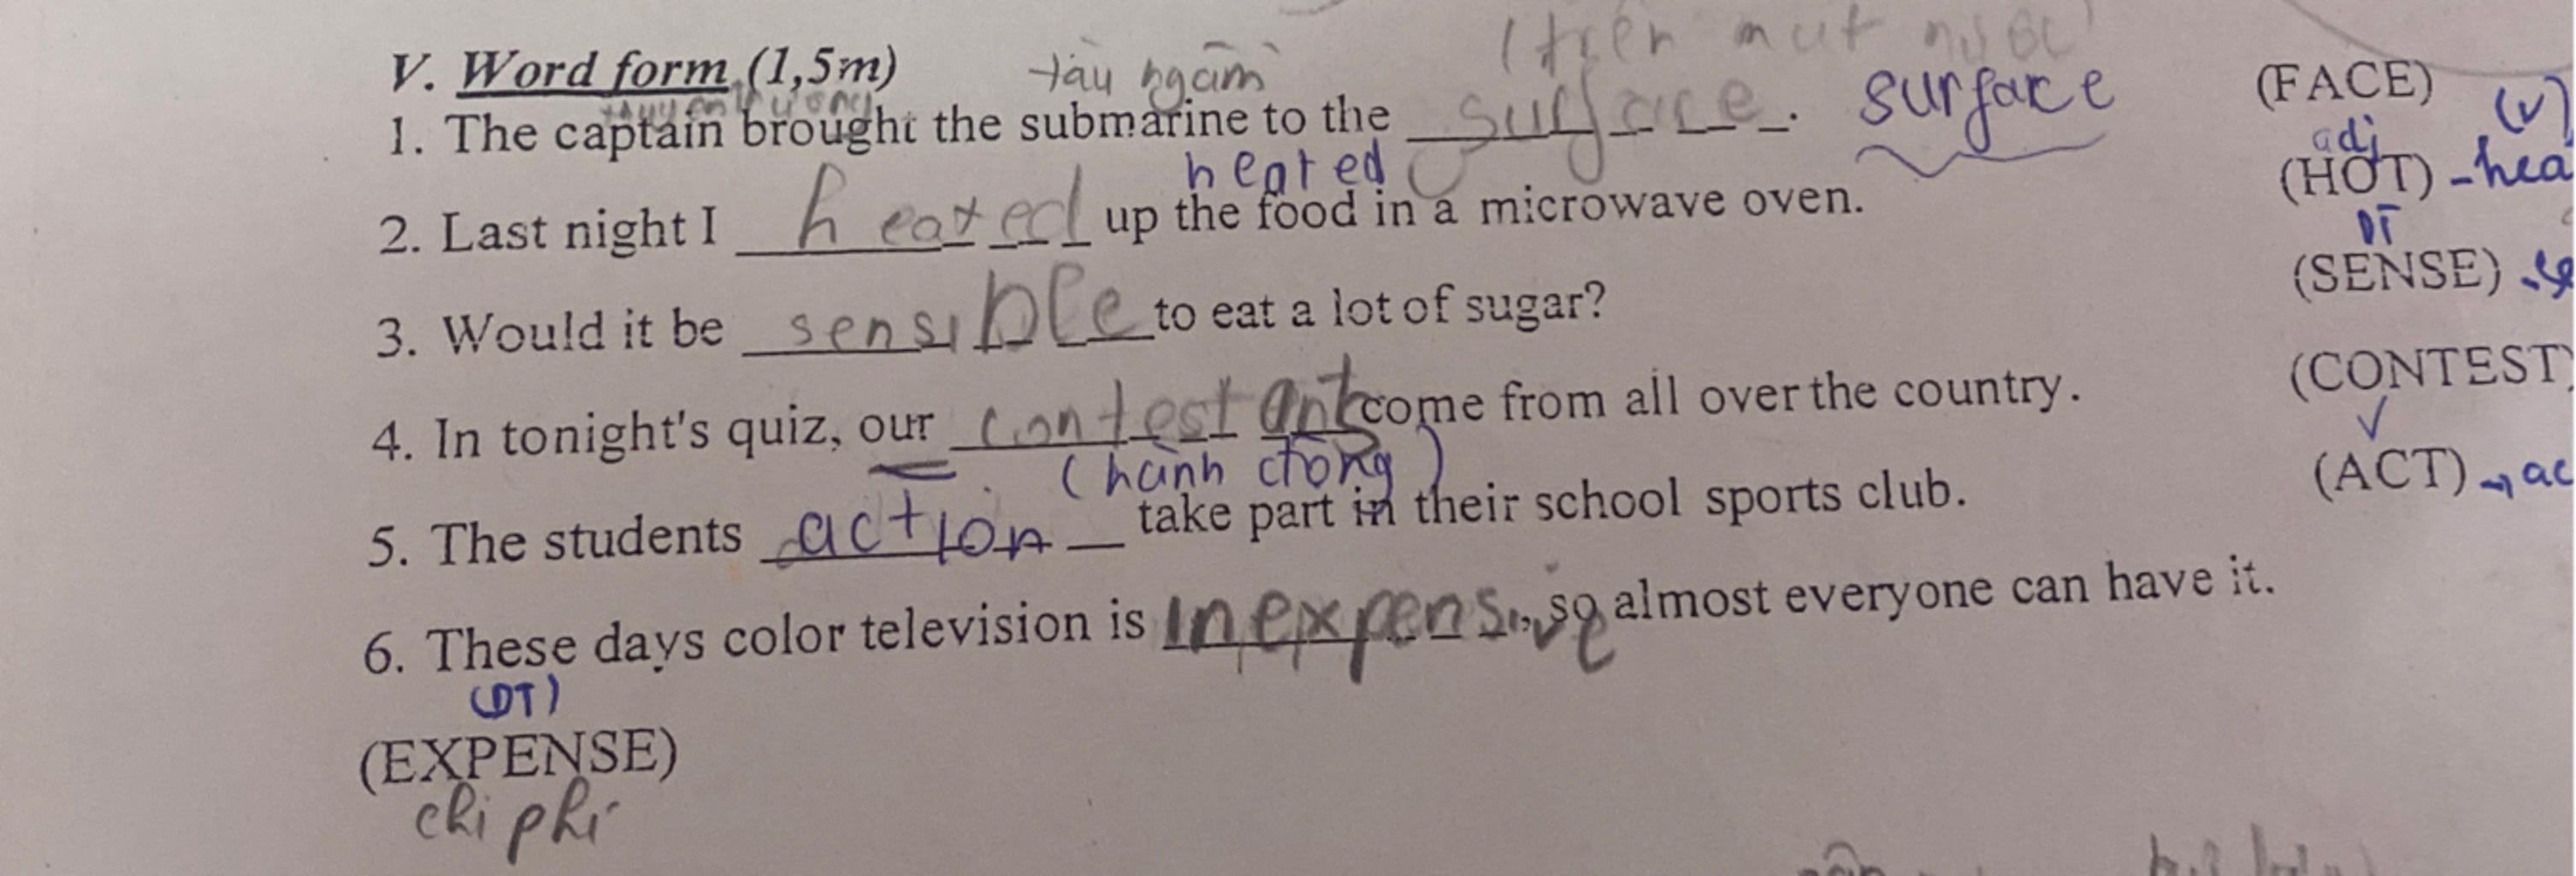 (trên mặt nước)
V. Word form (1,5m) tàu ngầm
1. The captain brought the submarine to the surface. surface (FACE) (v)
heated adj
2. Last night I heated up the food in a microwave oven. (HOT) - hea
DT
3. Would it be sensible to eat a lot of sugar? (SENSE)
4. In tonight's quiz, our contestants come from all over the country. (CONTEST)
(hành động) v
5. The students action take part in their school sports club. (ACT) → ac
6. These days color television is inexpensive, so almost everyone can have it.
(DT)
(EXPENSE)
chi phí